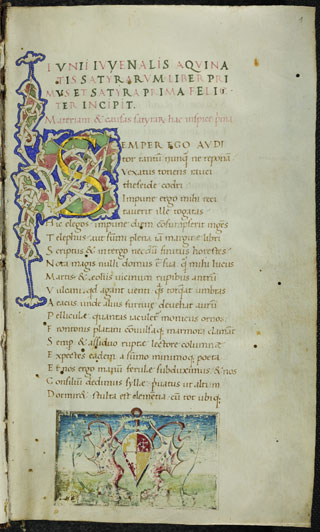 IVNII IVVENALIS AQVINA
TIS SATYRARVM LIBER PRI
MVS ET SATYRA PRIMA FELI
TER INCIPIT.
Materiam & causas satyrarum hac inspice prima
SEMPER EGO AVDI
tor tantum nunq̃ ne reponã
Vexatus totiens rauci
theseide codri
Impune ergo mihi
ille togatas
Hic elegos impune diem
Telephus aut summi plena iã margine libri
Scriptus & in tergo necdũ finitus horestes
Nota magis nulli domus ẽ sua q̃ mihi lucus
Martis & eoliis uicinum rupibus antrũ
Vulcani quid agant uenti quas torqueat umbras
Aeacus unde alius furtiuę deuehat aurũ
Pelliculę quantas iaculetur monicus ornos
Frontonis platani conuulsaq; marmora clamant
Semp & assiduo ruptę lectore columnę
Expectes eadem a sũmo minimoq; poeta
Et nos ergo manũ ferulę subduximus & nos
Consiliũ dedimus syllę priuatus ut altum
Dormiret stulta est clementia cũ tot ubiq;